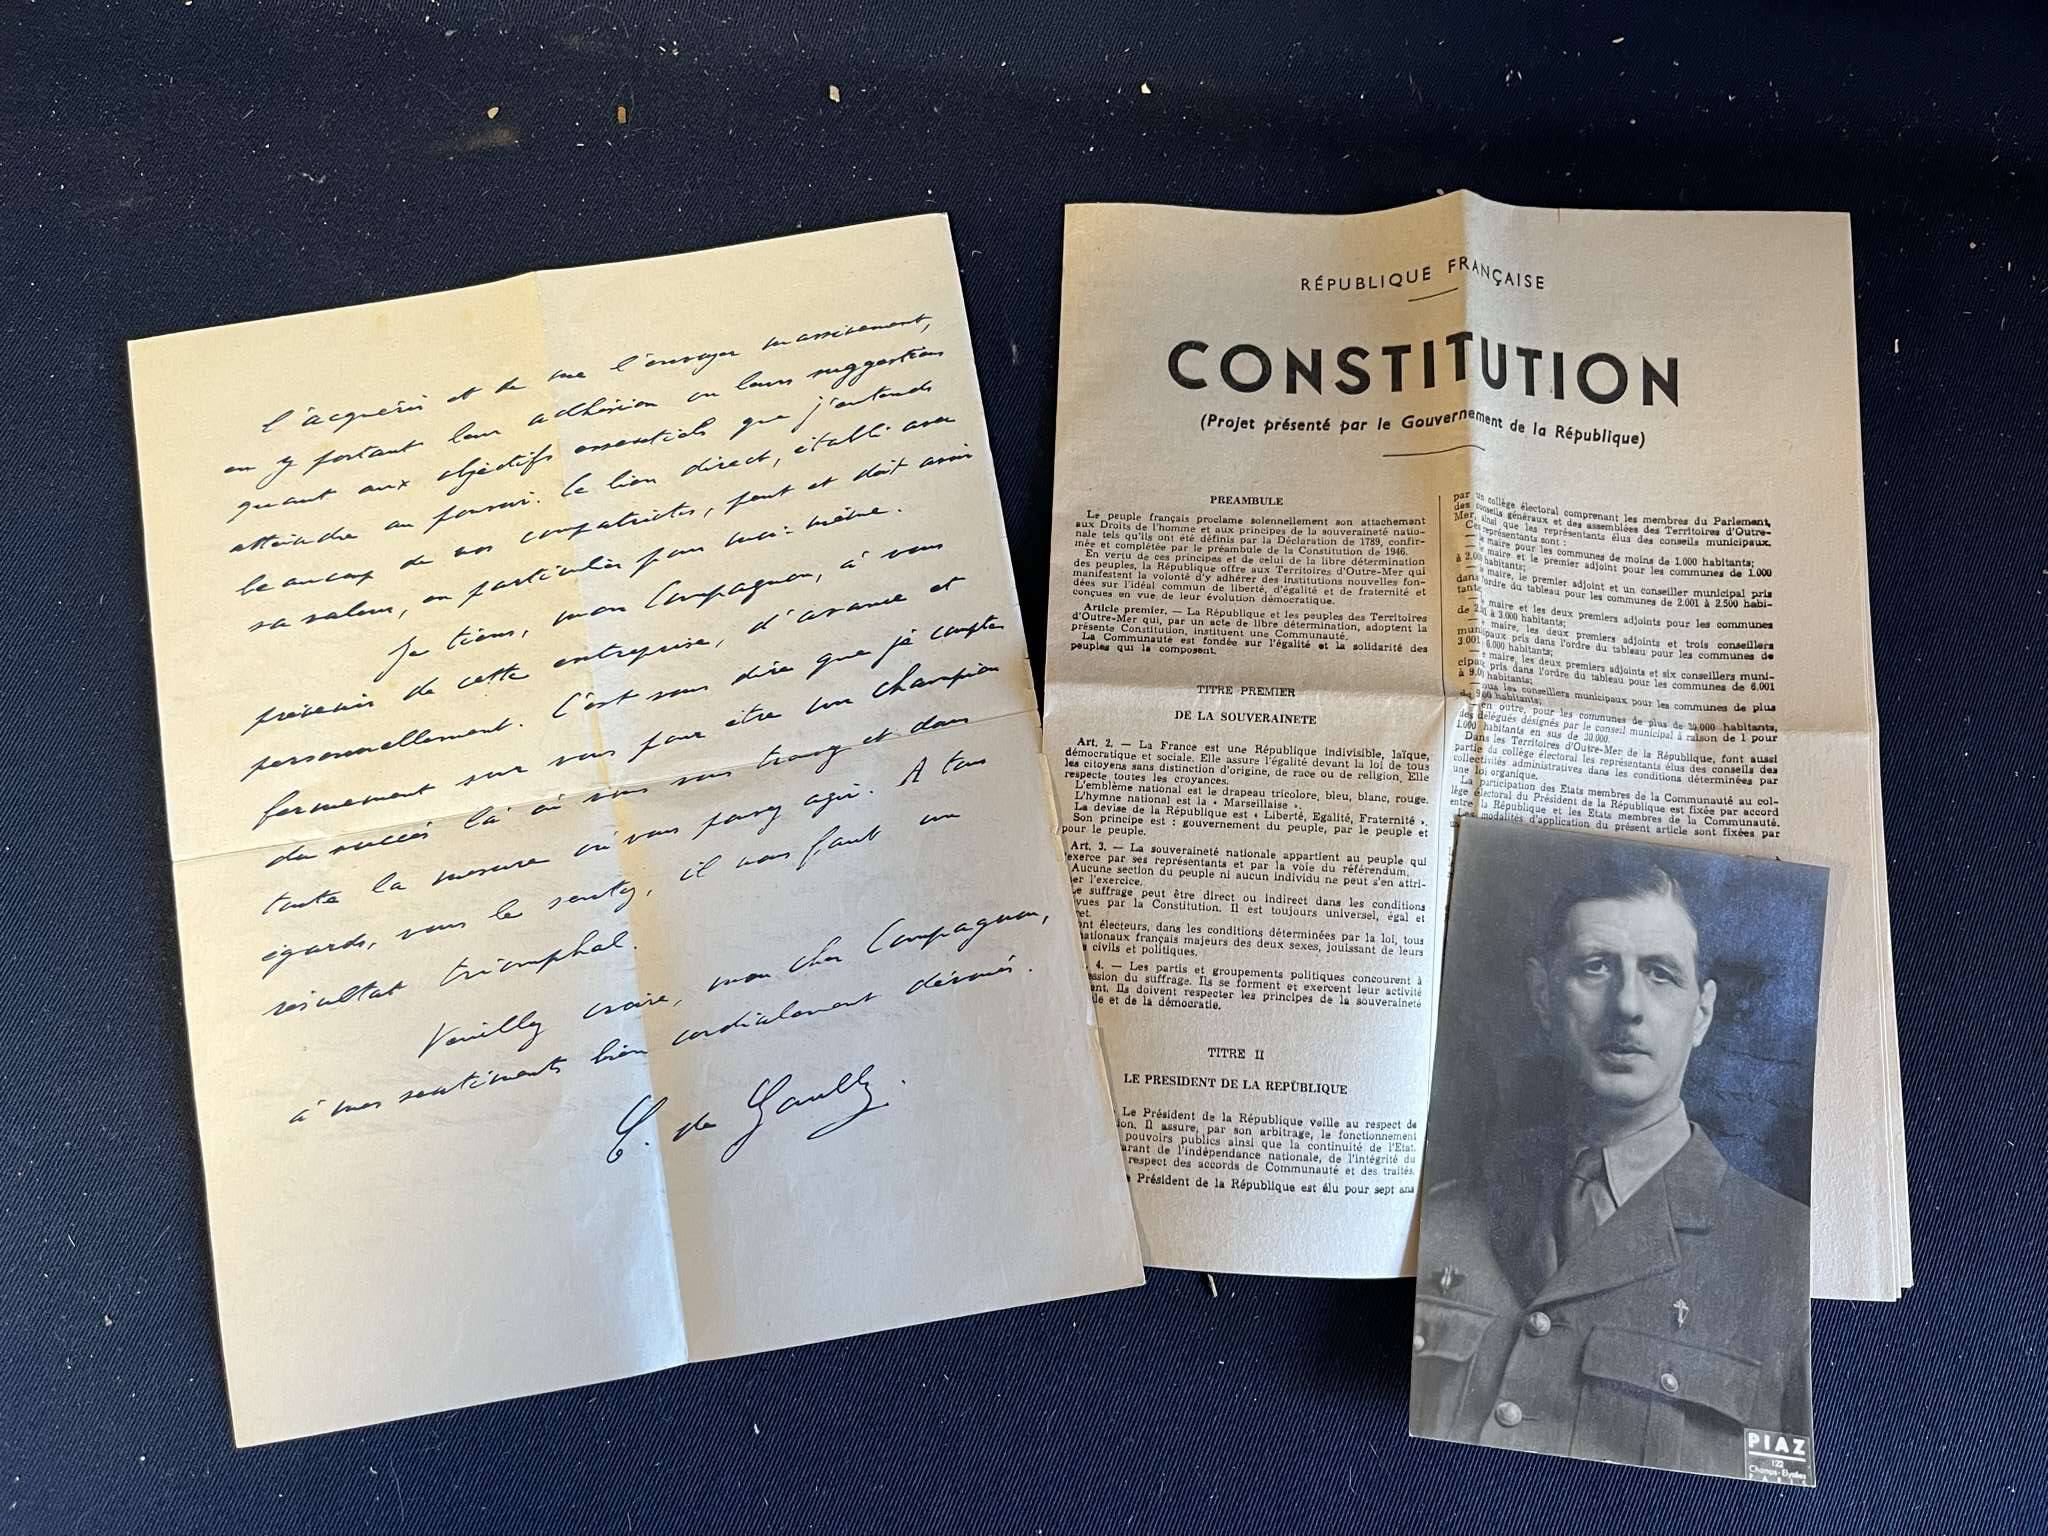 l'acquérir et de me l'envoyer massivement,
en y portant leur adhésion ou leurs suggestions
quant aux objectifs essentiels que j'entends
atteindre au pouvoir. Ce lien direct, établi avec
beaucoup de nos compatriotes, peut et doit avoir
sa valeur, en particulier pour moi-même.
Je tiens, mon Compagnon, à vous
prévenir de cette entreprise, d'avance et
personnellement. C'est vous dire que je compte
fermement sur vous pour être un champion
du succès là où vous vous trouvez et dans
toute la mesure où vous pouvez agir. A tous
égards, vous le sentez, il nous faut un
résultat triomphal.
Veuillez croire, mon cher Compagnon,
à mes sentiments bien cordialement dévoués.
C. de Gaulle.
RÉPUBLIQUE FRANÇAISE
CONSTITUTION
(Projet présenté par le Gouvernement de la République)
PREAMBULE
Le peuple français proclame solennellement son attachement
aux Droits de l'homme et aux principes de la souveraineté natio-
nale tels qu'ils ont été définis par la Déclaration de 1789, confir-
mée et complétée par le préambule de la Constitution de 1946.
En vertu de ces principes et de celui de la libre détermination
des peuples, la République offre aux Territoires d'Outre-Mer qui
manifestent la volonté d'y adhérer des institutions nouvelles fon-
dées sur l'idéal commun de liberté, d'égalité et de fraternité et
conçues en vue de leur évolution démocratique.
Article premier. — La République et les peuples des Territoires
d'Outre-Mer qui, par un acte de libre détermination, adoptent la
présente Constitution, instituent une Communauté.
La Communauté est fondée sur l'égalité et la solidarité des
peuples qui la composent.
TITRE PREMIER
DE LA SOUVERAINETE
Art. 2. — La France est une République indivisible, laïque,
démocratique et sociale. Elle assure l'égalité devant la loi de tous
les citoyens sans distinction d'origine, de race ou de religion. Elle
respecte toutes les croyances.
L'emblème national est le drapeau tricolore, bleu, blanc, rouge.
L'hymne national est la « Marseillaise ».
La devise de la République est « Liberté, Egalité, Fraternité ».
Son principe est : gouvernement du peuple, par le peuple et
pour le peuple.
Art. 3. — La souveraineté nationale appartient au peuple qui
l'exerce par ses représentants et par la voie du référendum.
Aucune section du peuple ni aucun individu ne peut s'en attri-
er l'exercice.
e suffrage peut être direct ou indirect dans les conditions
vues par la Constitution. Il est toujours universel, égal et
ret.
nt électeurs, dans les conditions déterminées par la loi, tous
nationaux français majeurs des deux sexes, jouissant de leurs
civils et politiques.
4. — Les partis et groupements politiques concourent à
ession du suffrage. Ils se forment et exercent leur activité
ent. Ils doivent respecter les principes de la souveraineté
le et de la démocratie.
TITRE II
LE PRESIDENT DE LA REPUBLIQUE
Le Président de la République veille au respect de
ion. Il assure, par son arbitrage, le fonctionnement
pouvoirs publics ainsi que la continuité de l'Etat.
arant de l'indépendance nationale, de l'intégrité du
respect des accords de Communauté et des traités.
e Président de la République est élu pour sept ans
par un collège électoral comprenant les membres du Parlement,
des conseils généraux et des assemblées des Territoires d'Outre-
Mer, ainsi que les représentants élus des conseils municipaux.
Ces représentants sont :
— le maire pour les communes de moins de 1.000 habitants;
— le maire et le premier adjoint pour les communes de 1.000
à 2.000 habitants;
— le maire, le premier adjoint et un conseiller municipal pris
dans l'ordre du tableau pour les communes de 2.001 à 2.500 habi-
tants;
— le maire et les deux premiers adjoints pour les communes
de 2.501 à 3.000 habitants;
— le maire, les deux premiers adjoints et trois conseillers
municipaux pris dans l'ordre du tableau pour les communes de
3.001 à 6.000 habitants;
— le maire, les deux premiers adjoints et six conseillers muni-
cipaux pris dans l'ordre du tableau pour les communes de 6.001
à 9.000 habitants;
— tous les conseillers municipaux pour les communes de plus
de 9.000 habitants;
— en outre, pour les communes de plus de 30.000 habitants,
des délégués désignés par le conseil municipal à raison de 1 pour
1.000 habitants en sus de 30.000.
Dans les Territoires d'Outre-Mer de la République, font aussi
partie du collège électoral les représentants élus des conseils des
collectivités administratives dans les conditions déterminées par
une loi organique.
La participation des Etats membres de la Communauté au col-
lège électoral du Président de la République est fixée par accord
entre la République et les Etats membres de la Communauté.
Les modalités d'application du présent article sont fixées par
PIAZ
122
Champs-Elysées
PARIS